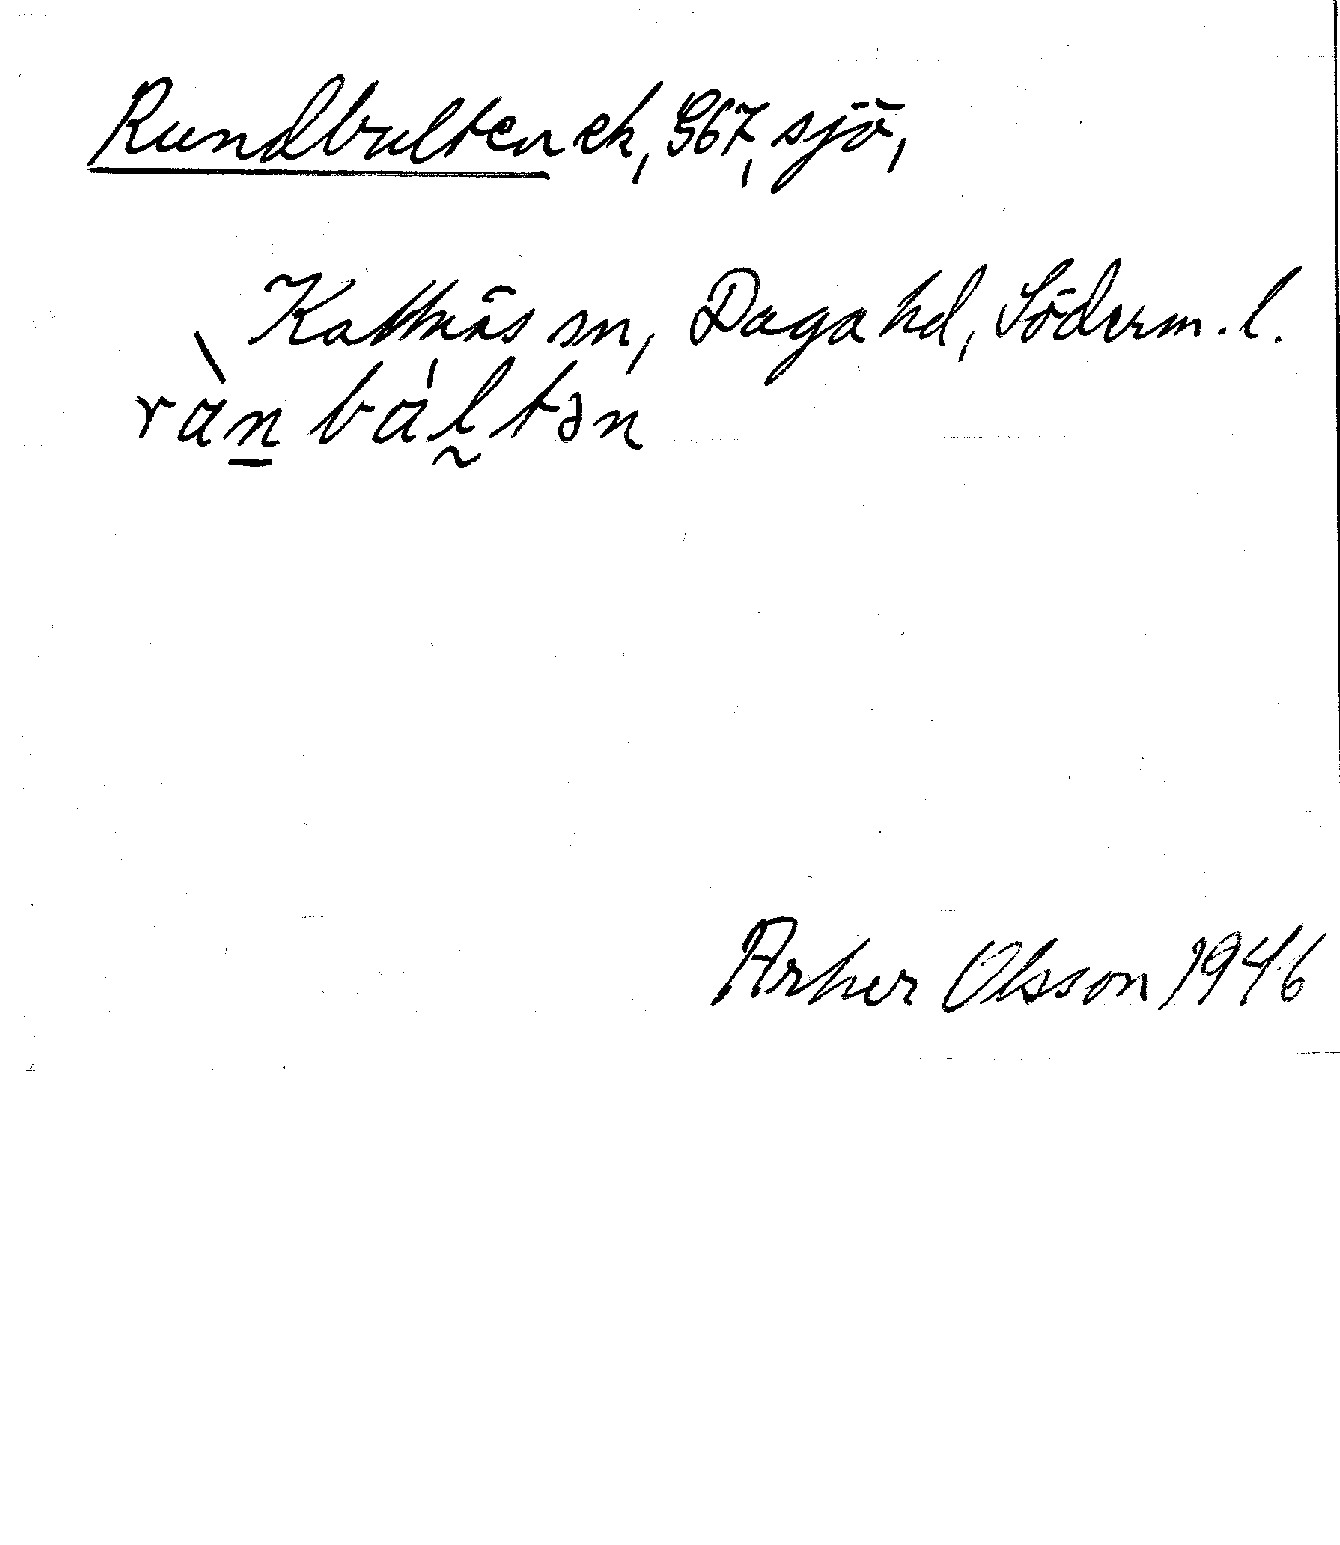 Rundbulten ek, 967, sjö,
Kattnäs sn, Daga hd, Söderm. l.
ràn bál̰tən
Arher Olsson 1946